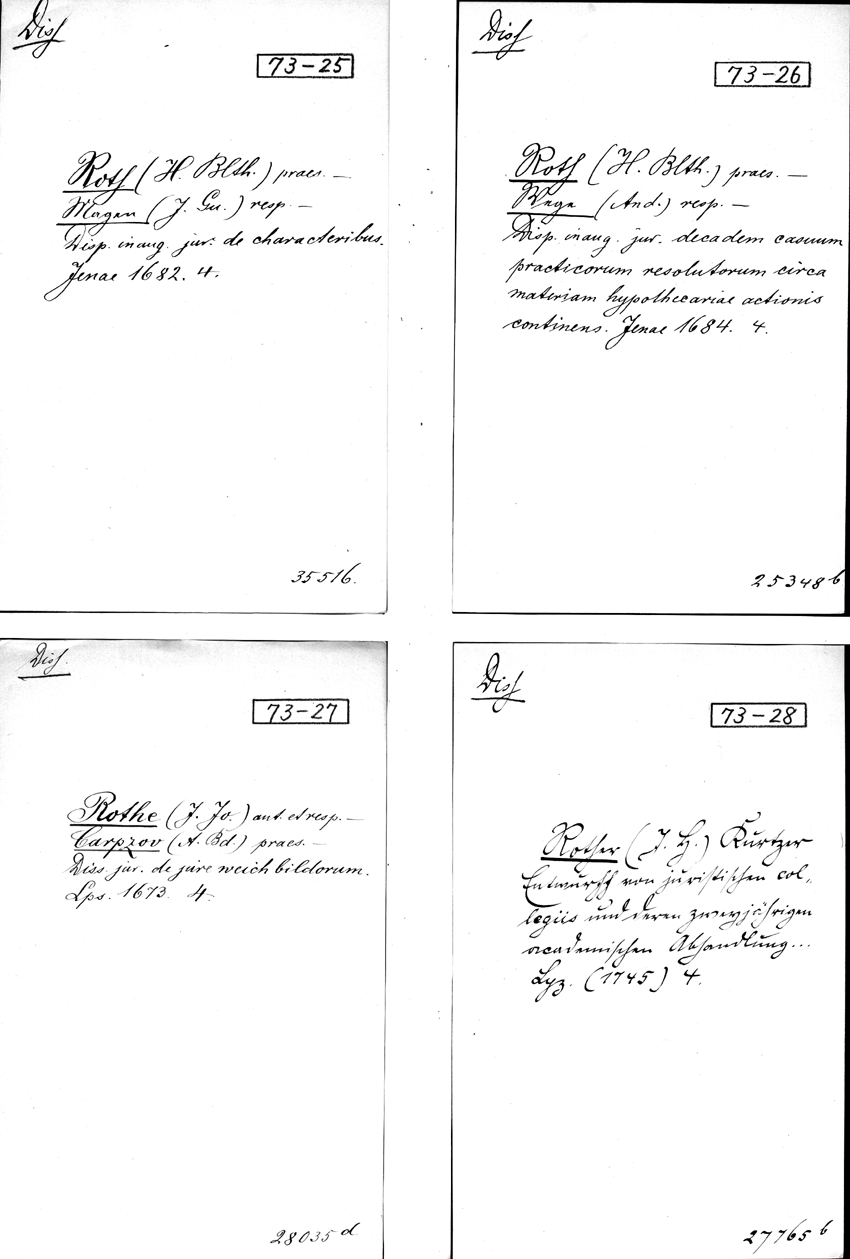 Diss
73-25
Roth (H. Blth.) praes. —
Magen (J. Gu.) resp. —
Disp. inaug. jur. de characteribus.
Jenae 1682. 4.
35516.
Diss
73-26
Roth (H. Blth.) praes. —
Wege (And.) resp. —
Disp. inaug. jur. decadem casuum
practicorum resolutorum circa
materiam hypothecariae actionis
continens. Jenae 1684. 4.
25348 b
Diss.
73-27
Rothe (J. Jo.) aut. et resp. —
Carpzov (A. Bd.) praes. —
Diss. jur. de jure weichbildorum.
Lps. 1673. 4.
28035 d
Diss
73-28
Rother (J. H.) Kurtzer
Entwurff von juristischen col-
legiis und deren zweyjährigen
academischen Abhandlung...
Lpz. (1745) 4.
27765 b